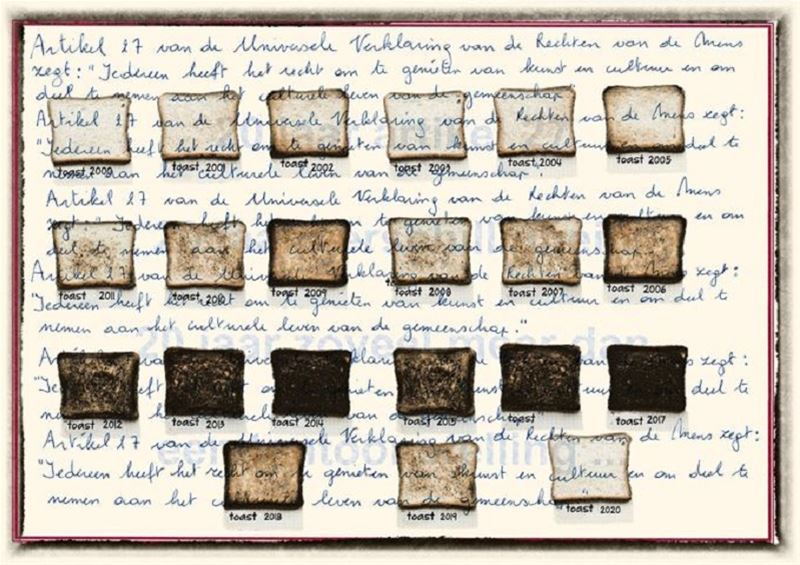 Artikel 27 van de Universele Verklaring van de Rechten van de Mens
zegt: "Iedereen heeft het recht om te genieten van kunst en cultuur en om
deel te nemen aan het culturele leven van de gemeenschap"
Artikel 27 van de Universele Verklaring van de Rechten van de Mens zegt:
20 jaar artikel 27
"Iedereen heeft het recht om te genieten van kunst en cultuur en om deel te
toast 2000 toast 2001 toast 2002 toast 2003 toast 2004 toast 2005
nemen aan het culturele leven van de gemeenschap".
Artikel 27 van de Universele Verklaring van de Rechten van de Mens
zegt: "Iedereen heeft het recht om te genieten van kunst en cultuur en om
deel te nemen aan het culturele leven van de gemeenschap."
Artikel 27 van de Universele Verklaring van de Rechten van de Mens zegt:
toast 2011 toast 2010 toast 2009 toast 2008 toast 2007 toast 2006
"Iedereen heeft het recht om te genieten van kunst en cultuur en om deel te
nemen aan het culturele leven van de gemeenschap."
20 jaar zoveel meer dan
zegt:
deel te
toast 2012 toast 2013 toast 2014 toast 2015 toast toast 2017
Artikel 27 van de Universele Verklaring van de Rechten van de Mens zegt:
"Iedereen heeft het recht om te genieten van kunst en cultuur en om deel te
nemen aan het culturele leven van de gemeenschap"
toast 2018 toast 2019 toast 2020